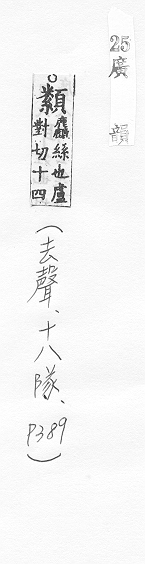 25廣韻
○纇麤絲也盧對切十四
（去聲、十八隊、P389）